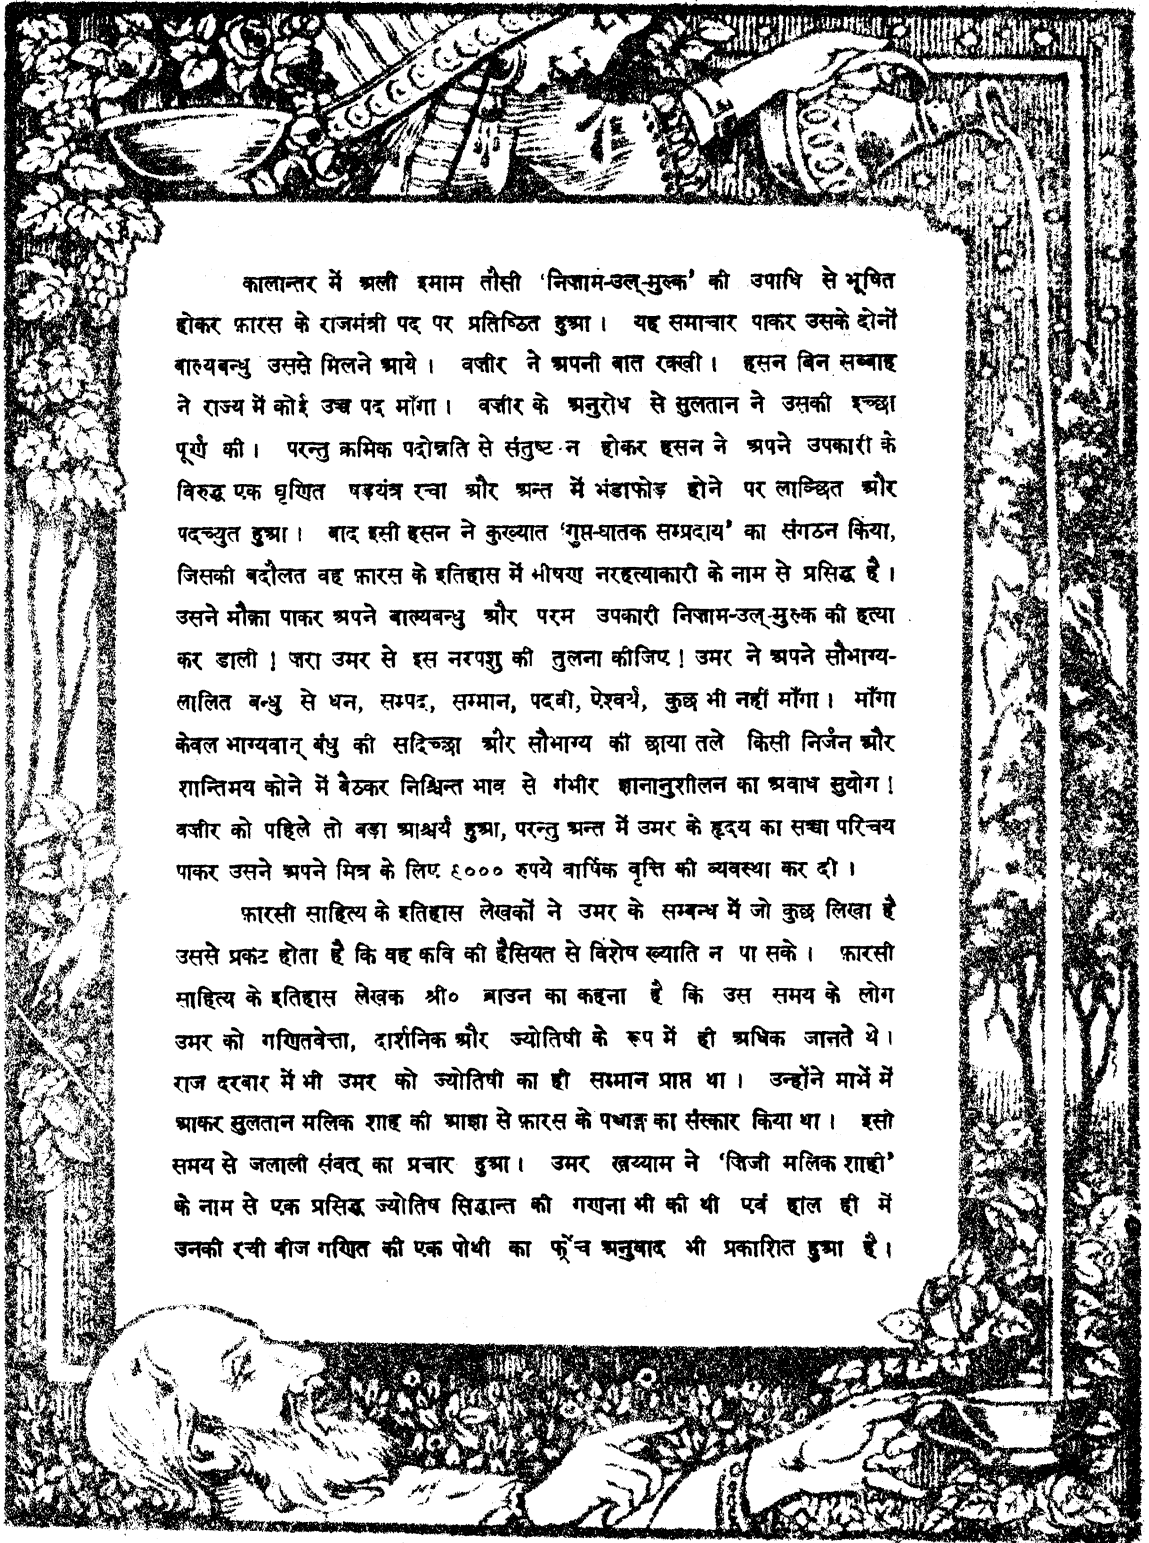 कालान्तर में अली इमाम तौसी ‘निज़ाम-उल्-मुल्क’ की उपाधि से भूषित
होकर फ़ारस के राजमंत्री पद पर प्रतिष्ठित हुआ। यह समाचार पाकर उसके दोनों
बाल्यबन्धु उससे मिलने आये। वज़ीर ने अपनी बात रक्खी। हसन बिन सब्बाह
ने राज्य में कोई उच्च पद माँगा। वज़ीर के अनुरोध से सुलतान ने उसकी इच्छा
पूर्ण की। परन्तु क्रमिक पदोन्नति से संतुष्ट न होकर हसन ने अपने उपकारी के
विरुद्ध एक घृणित षड़यंत्र रचा और अन्त में भंडाफोड़ होने पर लाञ्छित और
पदच्युत हुआ। बाद इसी हसन ने कुख्यात ‘गुप्त-घातक सम्प्रदाय’ का संगठन किया,
जिसकी बदौलत वह फ़ारस के इतिहास में भीषण नरहत्याकारी के नाम से प्रसिद्ध है।
उसने मौक़ा पाकर अपने बाल्यबन्धु और परम उपकारी निज़ाम-उल्-मुल्क की हत्या
कर डाली! ज़रा उमर से इस नरपशु की तुलना कीजिए! उमर ने अपने सौभाग्य-
लालित बन्धु से धन, सम्पद, सम्मान, पदवी, ऐश्वर्य, कुछ भी नहीं माँगा। माँगा
केवल भाग्यवान् बंधु की सदिच्छा और सौभाग्य की छाया तले किसी निर्जन और
शान्तिमय कोने में बैठकर निश्चिन्त भाव से गंभीर ज्ञानानुशीलन का अबाध सुयोग!
वज़ीर को पहिले तो बड़ा आश्चर्य हुआ, परन्तु अन्त में उमर के हृदय का सच्चा परिचय
पाकर उसने अपने मित्र के लिए ६००० रुपये वार्षिक वृत्ति की व्यवस्था कर दी।
फ़ारसी साहित्य के इतिहास लेखकों ने उमर के सम्बन्ध में जो कुछ लिखा है
उससे प्रकट होता है कि वह कवि की हैसियत से विशेष ख्याति न पा सके। फ़ारसी
साहित्य के इतिहास लेखक श्री० ब्राउन का कहना है कि उस समय के लोग
उमर को गणितवेत्ता, दार्शनिक और ज्योतिषी के रूप में ही अधिक जानते थे।
राज दरबार में भी उमर को ज्योतिषी का ही सम्मान प्राप्त था। उन्होंने मार्भे में
आकर सुलतान मलिक शाह की आज्ञा से फ़ारस के पञ्चाङ्ग का संस्कार किया था। इसी
समय से जलाली संवत् का प्रचार हुआ। उमर ख़य्याम ने ‘ज़िजी मलिक शाही’
के नाम से एक प्रसिद्ध ज्योतिष सिद्धान्त की गणना भी की थी एवं हाल ही में
उनकी रची बीज गणित की एक पोथी का फ्रेंच अनुवाद भी प्रकाशित हुआ है।